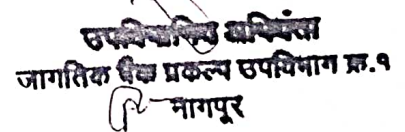 उपविभागिय अभियंता
जागतिक बैंक प्रकल्प उपविभाग क्र.१
नागपूर